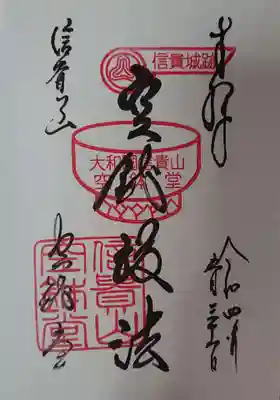 奉拝
令和四年
信貴城跡
大和国信貴山
空鉢堂
空鉢護法
信貴山
空鉢堂
信貴山
空鉢堂